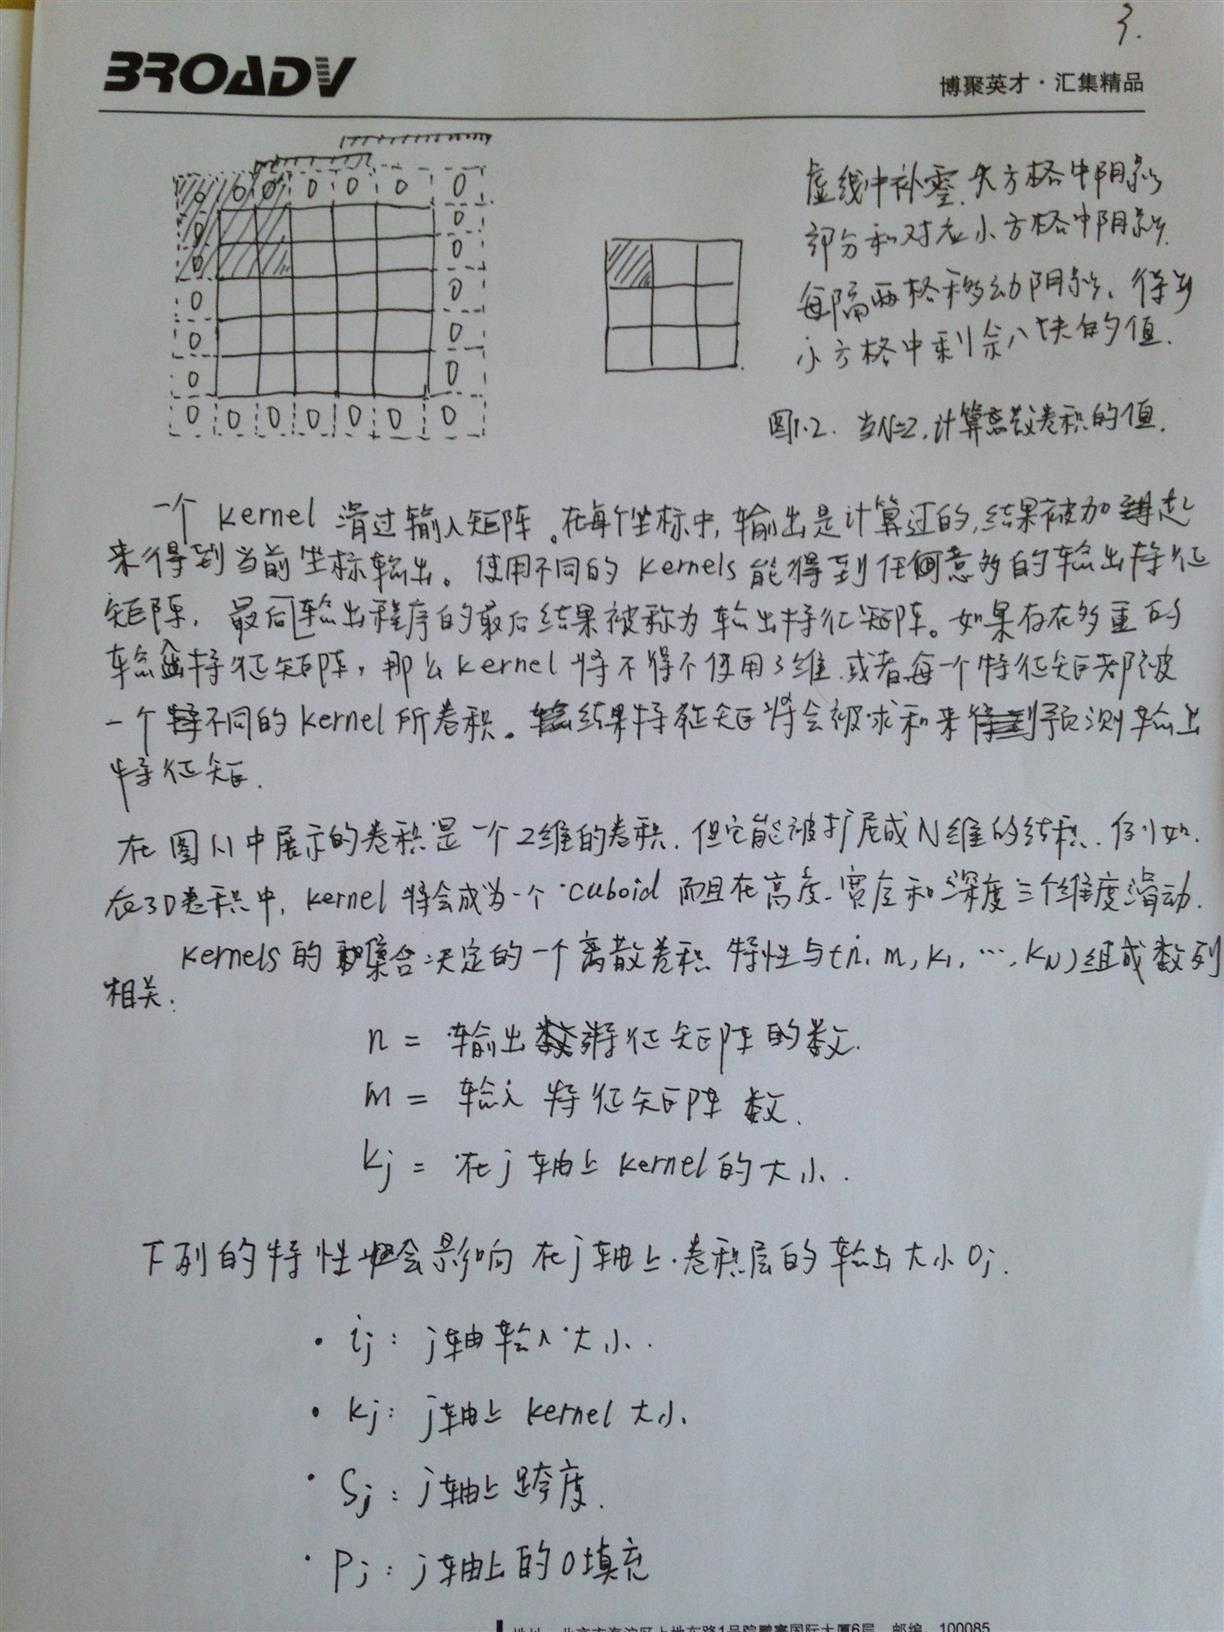 3.
BROADV
博聚英才·汇集精品
0 0 0 0 0 0 0
虚线中补零.大方格中阴影
0 0
部分和对应小方格中阴影.
0
每隔两格移动阴影、得到
0 0
小方格中剩余八块的值.
0 0
0 0
0 0 0 0 0 0 0
图1.2. 当N=2.计算离散卷积的值.
一个 kernel 滑过输入矩阵。在每个坐标中,输出是计算过的,结果被加起
来得到当前坐标输出。使用不同的 kernels 能得到任何意多的输出特征
矩阵, 最后输出程序的最后结果被称为输出特征矩阵。如果存在多重的
输入特征矩阵,那么kernel 将不得不使用3维.或者每一个特征矩都被
一个不同的kernel所卷积。结果特征矩将会被求和来预测输出
特征矩.
在图1.1中展示的卷积是一个2维的卷积.但它能被扩展成N维的结积.例如.
在3D卷积中, kernel 将会成为一个 cuboid 而且在高度、宽度和深度三个维度滑动.
kernels 的集合决定的一个离散卷积 特性与(n, m, k₁, …, kN)组成数列
相关:
n = 输出特征矩阵的数.
m = 输入 特征矩阵 数.
kj = 在j轴上kernel的大小.
下列的特性会影响 在j轴上卷积层的输出大小 Oj.
· ij: j轴输入大小.
· kj: j轴上 kernel 大小.
· Sj: j轴上跨度.
· Pj: j轴上的0填充
地址: 北京市海淀区上地东路1号院鹏寰国际大厦6层 邮编: 100085